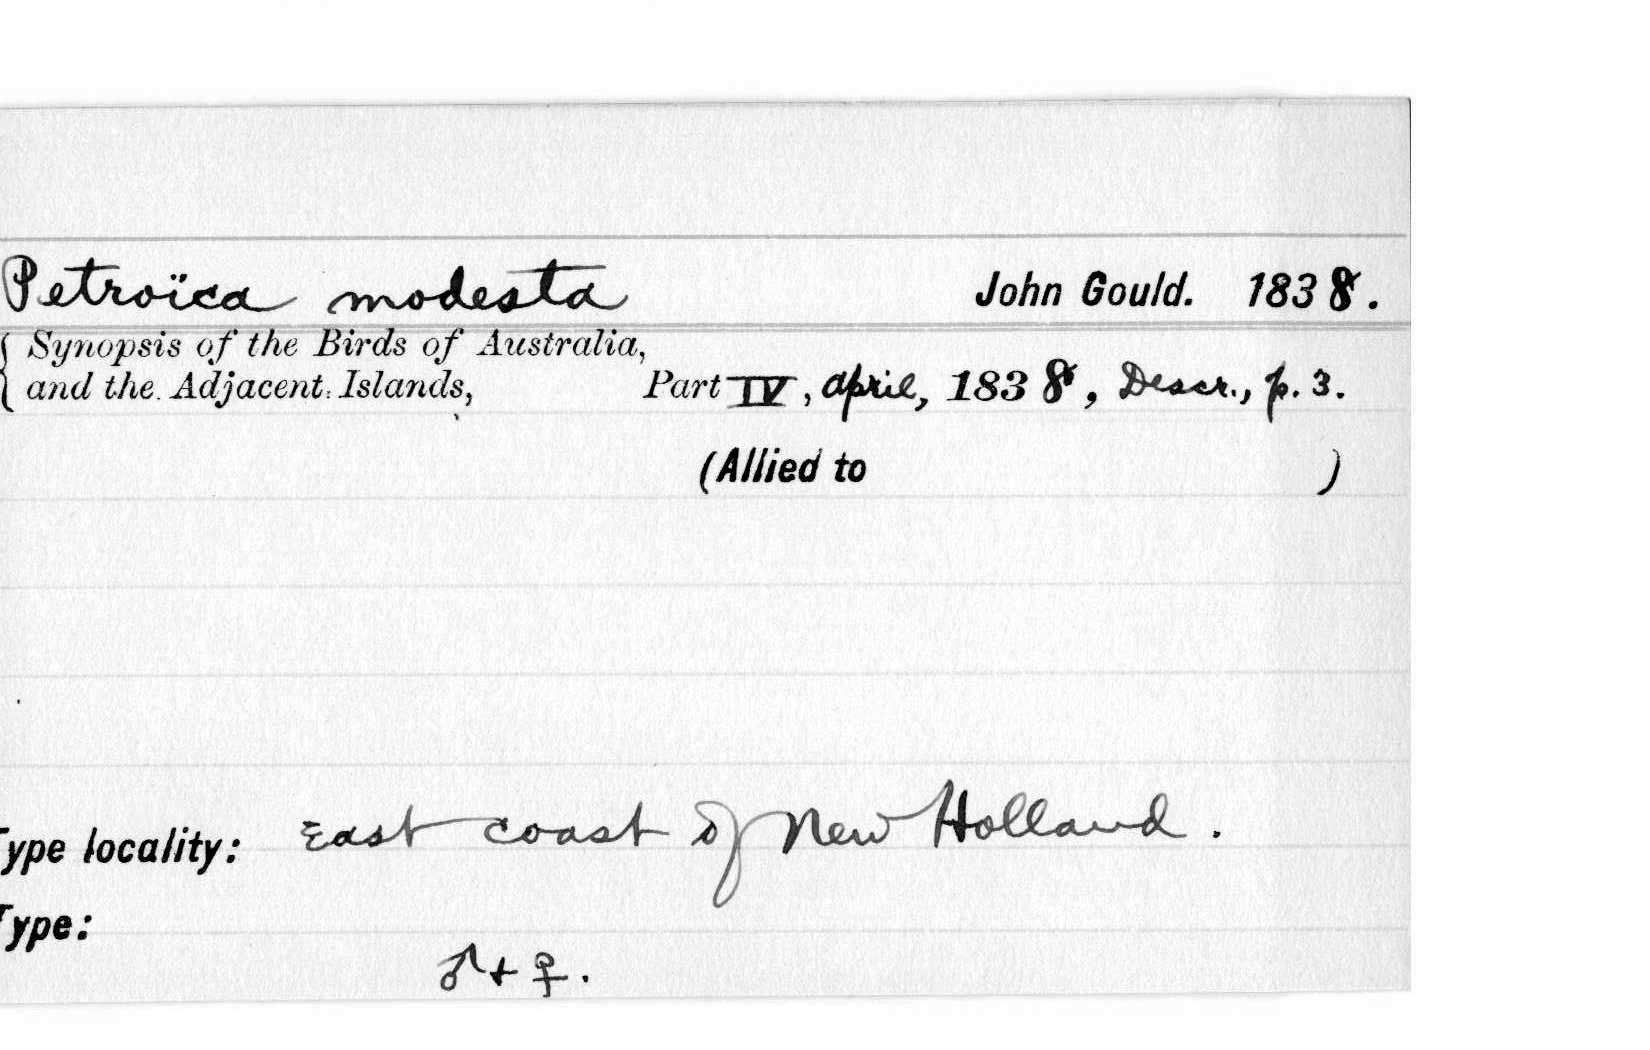 Petroïca modesta John Gould. 1838.
{ Synopsis of the Birds of Australia,
and the Adjacent Islands, Part IV, April, 1838, Descr., p. 3.
(Allied to )
Type locality: East coast of New Holland.
Type:
♂ + ♀.